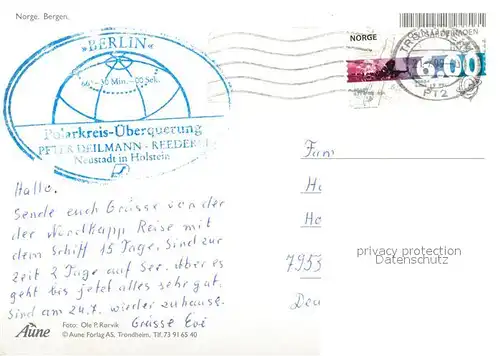 Norge. Bergen.
»BERLIN«
66°-30 Min.-00 Sek.
Polarkreis-Überquerung
PETER DEILMANN - REEDEREI
Neustadt in Holstein
NORGE
6.00
PTZ
Hallo.
Sende euch Grüsse von der
der Nordkapp Reise mit
dem Schiff 15 Tage. Sind zur
Zeit 2 Tage auf See. Aber es
geht bis jetzt alles sehr gut.
Sind am 24.7. wieder zuhause.
Grüsse Evi
Fam
Ha
Ho
7953
Deu
privacy protection
Datenschutz
Aune
Foto: Ole P. Rørvik
© Aune Forlag AS, Trondheim, Tlf. 73 91 65 40